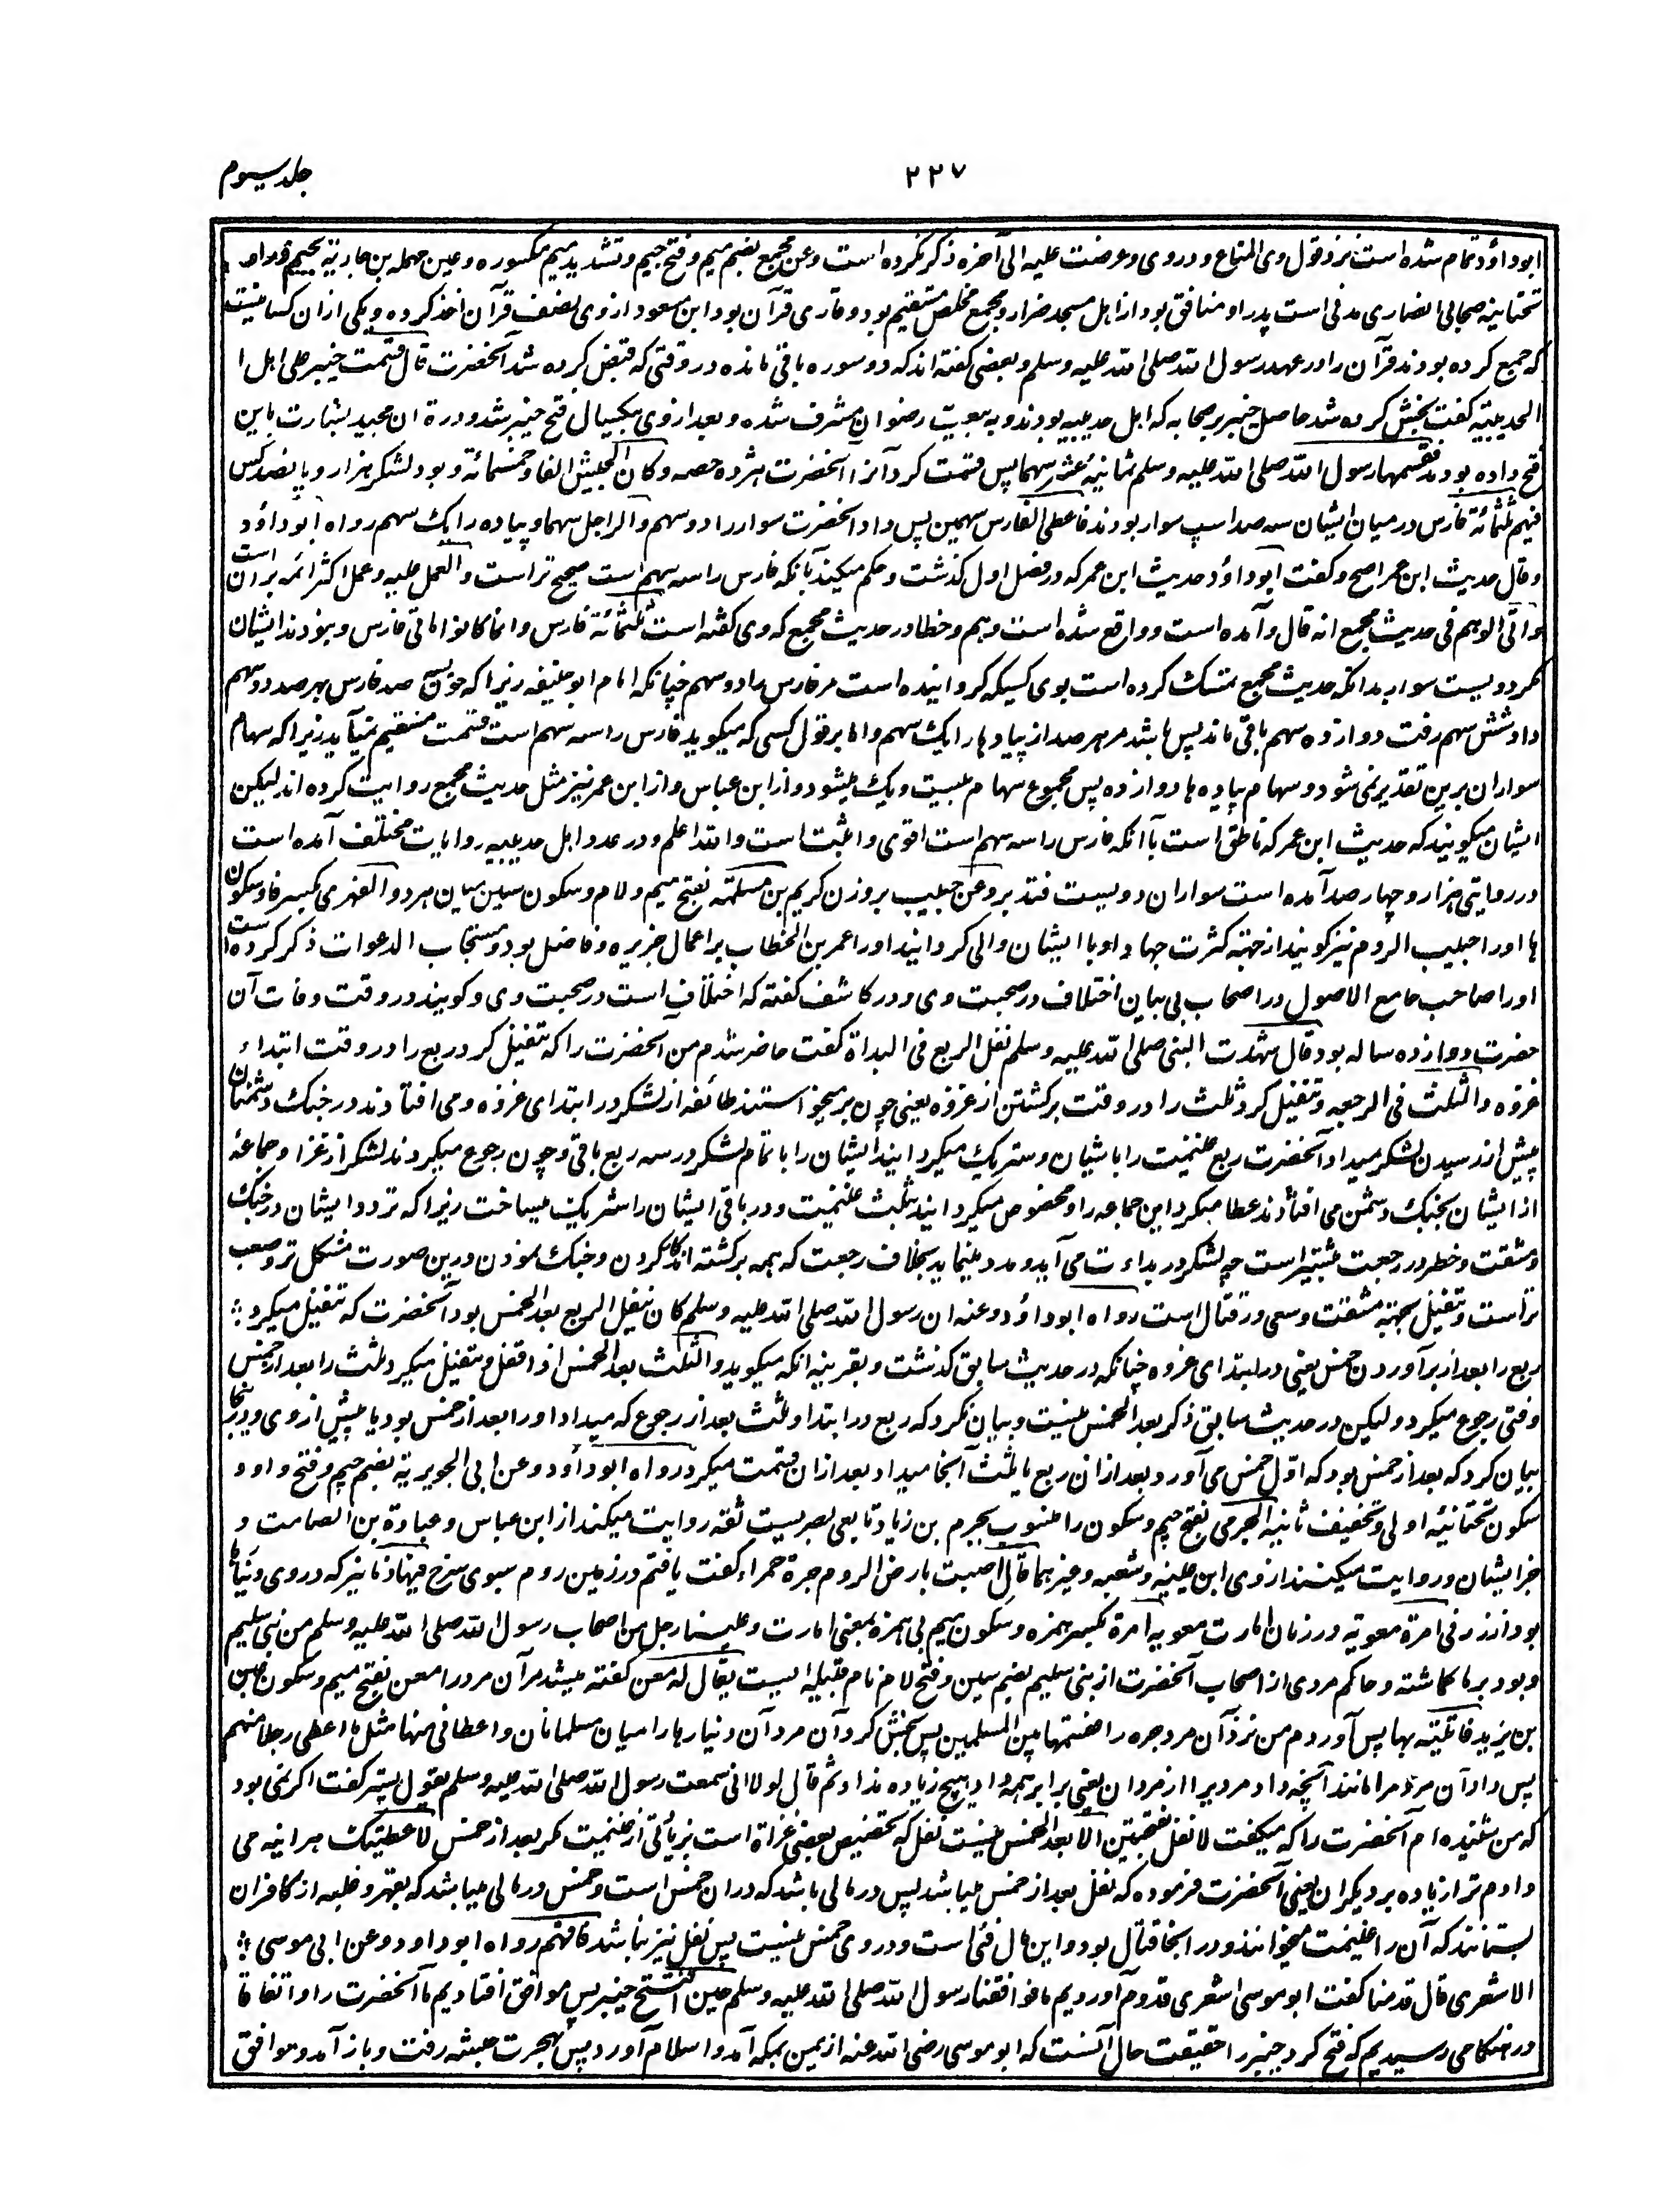 جلد سیوم
۲۲۷
ابوداؤد تمام شده است نزد قول وی المتاع و در وی وعرضت علیه الی آخره ذکر نکرده است وعن مجمع بضم میم و فتح جیم و تشدید میم مکسوره و عین مهمله بن جاریة بجیم و را و
تحتانیه صحابی انصاری مدنی است پدر او منافق بود از اهل مسجد ضرار و مجمع مخلص مستقیم بود و قاری قرآن بود ابن مسعود از وی نصف قرآن اخذ کرده و یکی از ان کسانیست
که جمع کرده بودند قرآن را در عهد رسول الله صلی الله علیه وسلم و بعضی گفته اند که دو سوره باقی مانده در وقتی که قبض کرده شد آنحضرت قال قسمت خیبر علی اهل ا
الحدیبیة گفت بخش کرده شد حاصل خیبر بر صحابه که اهل حدیبیه بودند و به بیعت رضوان مشرف شده و بعد از وی بیکسال فتح خیبر شد و در قرآن مجید بشارت باین
فتح داده بودند فقسمها رسول الله صلی الله علیه وسلم ثمانیة عشر سهما پس قسمت کرد آنرا آنحضرت هژده حصه وکان الجیش الفا وخمسمائة و بود لشکر هزار و پانصد کس
فیهم ثلثمائة فارس در میان ایشان سه صد اسپ سوار بودند فاعطی الفارس سهمین پس داد آنحضرت سوار را دو سهم والراجل سهما و پیاده را یک سهم رواه ابوداؤد
وقال حدیث ابن عمر اصح و گفت ابوداؤد حدیث ابن عمر که در فصل اول گذشت و حکم میکند بآنکه فارس را سه سهم است صحیح تر است والعمل علیه و عمل اکثر ائمه بر آن است
واتی الوهم فی حدیث مجمع انه قال و آمده است و واقع شده است وهم و خطا در حدیث مجمع که وی گفته است ثلثمائة فارس وانما کانوا مائتی فارس و نبودند ایشان
مگر دویست سوار بدانکه حدیث مجمع تمسک کرده است بوی کسیکه گردانیده است مر فارس را دو سهم چنانکه امام ابوحنیفه زیرا که چون سه صد فارس بهر صد دو سهم
داد شش سهم رفت دوازده سهم باقی ماند پس باشد مر هر صد از پیادها را یک سهم و اما بر قول کسی که میگوید فارس را سه سهم است قسمت مستقیم نمی آید زیرا که سهام
سواران برین تقدیر نه می شود و سهام پیاده ها دوازده پس مجموع سهام بیست و یک میشود و از ابن عباس و از ابن عمر نیز مثل حدیث مجمع روایت کرده اند لیکن
ایشان میگویند که حدیث ابن عمر که ناطق است بآنکه فارس را سه سهم است اقوی و اثبت است والله اعلم و در عدد اهل حدیبیه روایات مختلف آمده است
در روایتی هزار و چهار صد آمده است سواران دویست فتدبر وعن حبیب بر وزن کریم بن مسلمة بفتح میم و لام و سکون سین میان هر دو الفهری بکسر فا و سکون
ها او را حبیب الروم نیز گویند از جهة کثرت جهاد او با ایشان والی گردانید او را عمر بن الخطاب بر اعمال جزیره و فاضل بود و مستجاب الدعوات ذکر کرده است
او را صاحب جامع الاصول در اصحاب بی بیان اختلاف در صحبت وی و در کاشف گفته که اختلاف است در صحبت وی و گویند در وقت وفات آن
حضرت دوازده ساله بود قال شهدت النبی صلی الله علیه وسلم نفل الربع فی البداة گفت حاضر شدم من آنحضرت را که تنفیل کرد ربع را در وقت ابتداء
غزوه والثلث فی الرجعه و تنفیل کرد ثلث را در وقت برگشتن از غزوه یعنی چون برمیخواستند طائفه از لشکر در ابتدای غزوه و می افتادند در جنگ دشمنان
پیش از رسیدن لشکر میداد آنحضرت ربع غنیمت را باشان و شریک میگردانید ایشان را با تمام لشکر در سه ربع باقی و چون رجوع میکردند لشکر از غزا و جماعهٔ
از ایشان بجنگ دشمن می افتادند عطا میکرد این جماعه را و مخصوص میگردانید بثلث غنیمت و در باقی ایشان را شریک میساخت زیرا که تردد ایشان در جنگ
و مشقت و خطر در رجعت بیشتر است چه لشکر در بداءت می آید و مدد مینماید بخلاف رجعت که همه برگشته اند کار کردن و جنگ نمودن درین صورت مشکل تر و صعب
تر است و تنفیل بجهة مشقت و سعی در قتال است رواه ابوداؤد وعنه ان رسول الله صلی الله علیه وسلم کان ینفل الربع بعد الخمس بود آنحضرت که تنفیل میکرد
ربع را بعد از بر آوردن خمس یعنی در ابتدای غزوه چنانکه در حدیث سابق گذشت و بقرینه انکه میگوید والثلث بعد الخمس اذا قفل و تنفیل میکرد ثلث را بعد از خمس
وقتی رجوع میکرد و لیکن در حدیث سابق ذکر بعد الخمس نیست و بیان نکرد که ربع در ابتدا و ثلث بعد از رجوع که میداد او را بعد از خمس بود یا پیش از وی و درینجا
بیان کرد که بعد از خمس بود که اول خمس می آورد و بعد از ان ربع یا ثلث آنجا میداد بعد ازان قسمت میکرد رواه ابوداؤد وعن ابی الجویریة بضم جیم و فتح واو و
سکون تحتانیه اولی و تخفیف ثانیه الجرمی بفتح جیم و سکون را منسوب بجرم بن زیاد تابعی بصریست ثقه روایت میکند از ابن عباس و عبادة بن الصامت و
جز ایشان و روایت میکنند از وی ابن عیینه و شعبه و غیرهما قال اصبت بارض الروم جرة حمراء گفت یافتم در زمین روم سبوی سرخ فیها دنانیر که در وی دینارها
بود از زر فی امرة معویة در زمان امارت معویه امرة بکسر همزه و سکون میم بی همزه بمعنی امارت وعلینا رجل من اصحاب رسول الله صلی الله علیه وسلم من بنی سلیم
و بود بر ما گماشته و حاکم مردی از اصحاب آنحضرت از بنی سلیم بضم سین و فتح لام نام قبیله ایست یقال له معن گفته میشد مر آن مرد را معن بفتح میم و سکون عین
بن یزید فاتیته بها پس آوردم من نزد آن مرد جره را فقسمها بین المسلمین پس بخش کرد آن مرد آن دینارها را میان مسلمانان واعطانی منها مثل ما اعطی رجلا منهم
پس داد آن مرد مرا مانند آنچه داد مردیرا از مردان یعنی برابر همه داد هیچ زیاده نداد ثم قال لولا انی سمعت رسول الله صلی الله علیه وسلم یقول پستر گفت اگر نمی بود
که من شنیده ام آنحضرت را که میگفت لا نفل الا بعد الخمس نیست نفل که تخصیص بعضی غزاة است بزیادتی از غنیمت مگر بعد از خمس لاعطیتک هر اینه می
دادم ترا زیاده بر دیگران یعنی آنحضرت فرموده که نفل بعد از خمس میباشد پس در مالی باشد که در ان خمس است و خمس در مالی میباشد که بقهر و غلبه از کافران
بستانند که آن را غنیمت میخوانند و در انجا قتال بود و این مال فئ است و در وی خمس نیست پس نفل نیز نباشد فافهم رواه ابوداود وعن ابی موسی
الاشعری قال قدمنا گفت ابو موسی اشعری قدوم آوردیم ما فوافقنا رسول الله صلی الله علیه وسلم حین افتتح خیبر پس موافق افتادیم ما آنحضرت را و اتفاقا
در هنگامی رسیدیم که فتح کرد خیبر را حقیقت حال آنست که ابو موسی رضی الله عنه از یمن بمکه آمد و اسلام آورد پس بهجرت حبشه رفت و باز آمد و موافق